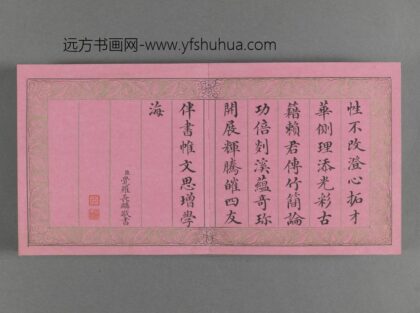 远方书画网-www.yfshuhua.com
性不改澄心拓才
華側理添光彩古
籍賴君傳竹簡論
功倍剡溪蘊奇珍
開展輝騰皠四友
伴書帷文思增學
海
臣覺羅長麟敬書